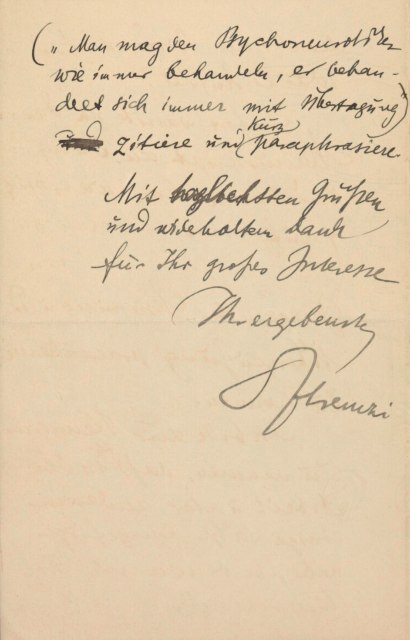 („Man mag den Psychoneurotiker
wie immer behandeln, er behan-
delt sich immer mit Übertragung")
und zitiere und kurz paraphrasiere.
Mit herzlichsten Grüßen
und wiederholtem Dank
für Ihr großes Interesse
Ihr ergebenster
Ferenczi